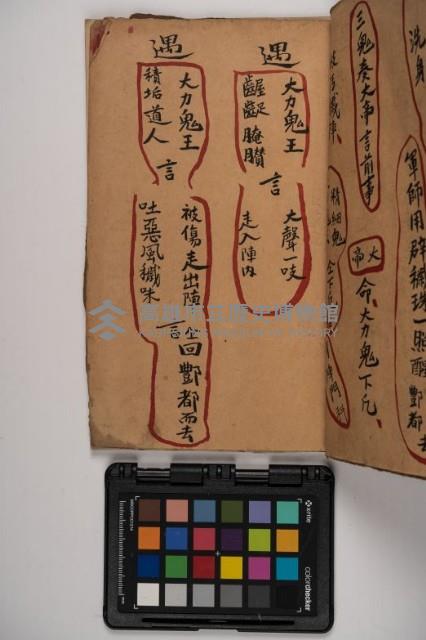 洗身
軍師用辟穢珠一照醒酆都去
三鬼奏大帝言前事
大帝
命大力鬼下凡
精細鬼
遇
大力鬼王
齷齪腌臢
言
大聲一吱
走入陣內
遇
大力鬼王
積垢道人
言
被傷走出陣
回酆都而去
吐惡風穢味
高雄市立歷史博物館
KAOHSIUNG MUSEUM OF HISTORY
x-rite
colorchecker